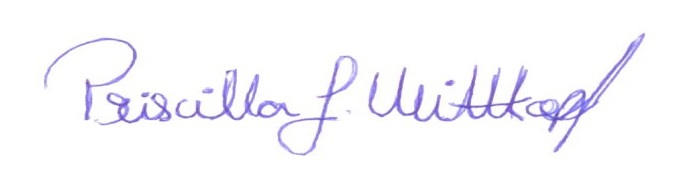 Priscilla G. Wittkopf